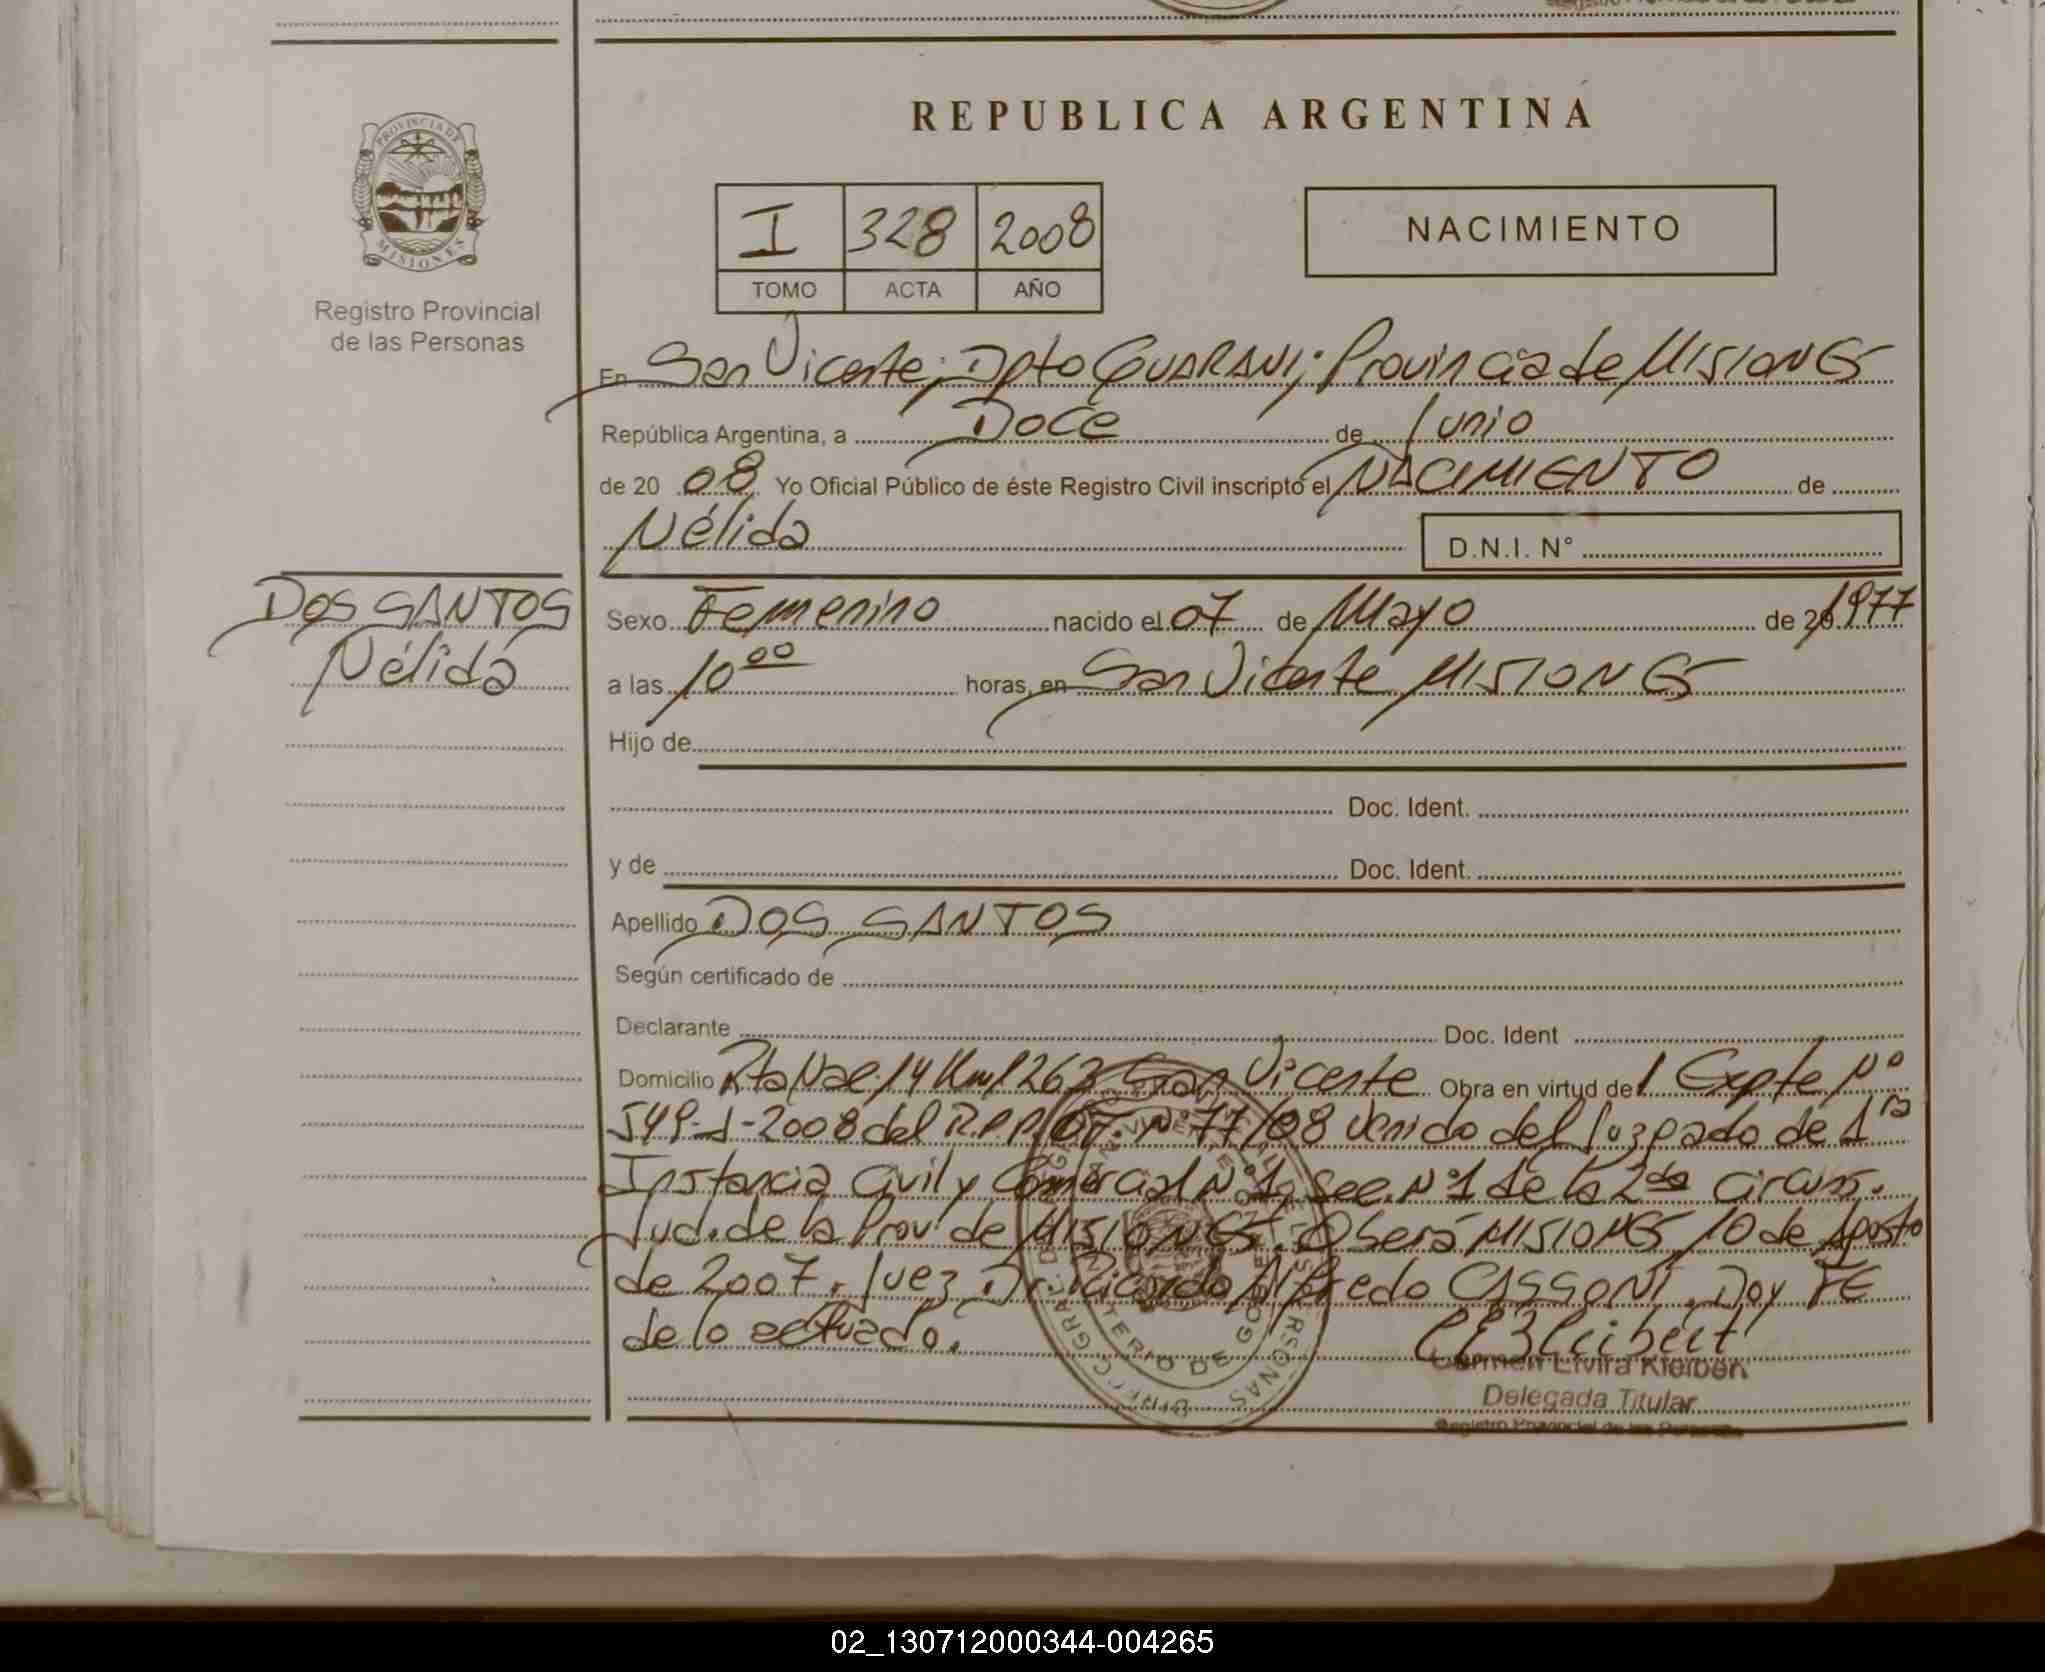 REPUBLICA ARGENTINA
PROVINCIA DE
MISIONES
Registro Provincial
de las Personas
I 328 2008
TOMO ACTA AÑO
NACIMIENTO
En San Vicente; Dpto GUARANI; Provincia de MISIONES
República Argentina, a Doce de Junio
de 20 08 Yo Oficial Público de éste Registro Civil inscripto el NACIMIENTO de
Nélida
D.N.I. N°
DOS SANTOS
Nélida
Sexo Femenino nacido el 07 de Mayo de 20 1977
a las 10 00 horas, en San Vicente MISIONES
Hijo de
Doc. Ident.
y de Doc. Ident.
Apellido DOS SANTOS
Según certificado de
Declarante Doc. Ident
Domicilio Rta Nac. 14 Km 1263 San Vicente Obra en virtud del Expte N°
-2008 del R.P.P. N° 77/08 Venido del Juzgado de 1ra
Instancia Civil y Comercial N° 1, Sec. N° 1 de la 2da Circuns.
Jud. de la Prov de MISIONES. Oberá MISIONES 10 de Agosto
de 2007. Juez Dr. Ricardo Alfredo CASSONI. Doy FE
de lo actuado.
Carmen Elvira Kleibert
Delegada Titular
Registro Provincial de las Personas
02_130712000344-004265